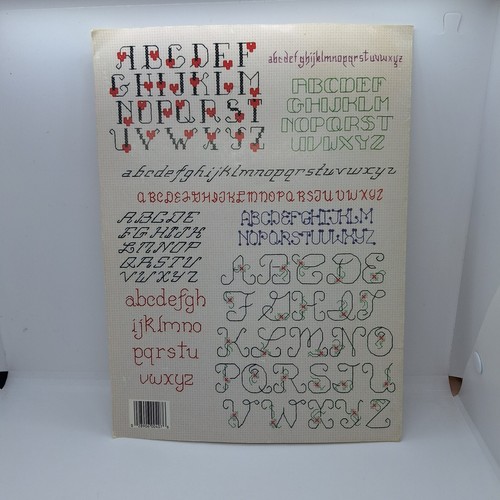 ABCDEF
GHIJKLM
NOPQRST
UVWXYZ
abcdefghijklmnopqrstuvwxyz
ABCDEF
GHIJKLM
NOPQRST
UVWXYZ
abcdefghijklmnopqrstuvwxyz
ABCDEFGHIJKLMNOPQRSTUVWXYZ
ABCDE
FGHIJK
LMNOP
QRSTU
VWXYZ
ABCDEFGHIJKLM
NOPQRSTUVWXYZ
abcdefgh
ijklmno
pqrstu
vwxyz
ABCDE
FGHIJ
KLMNO
PQRSTU
VWXYZ